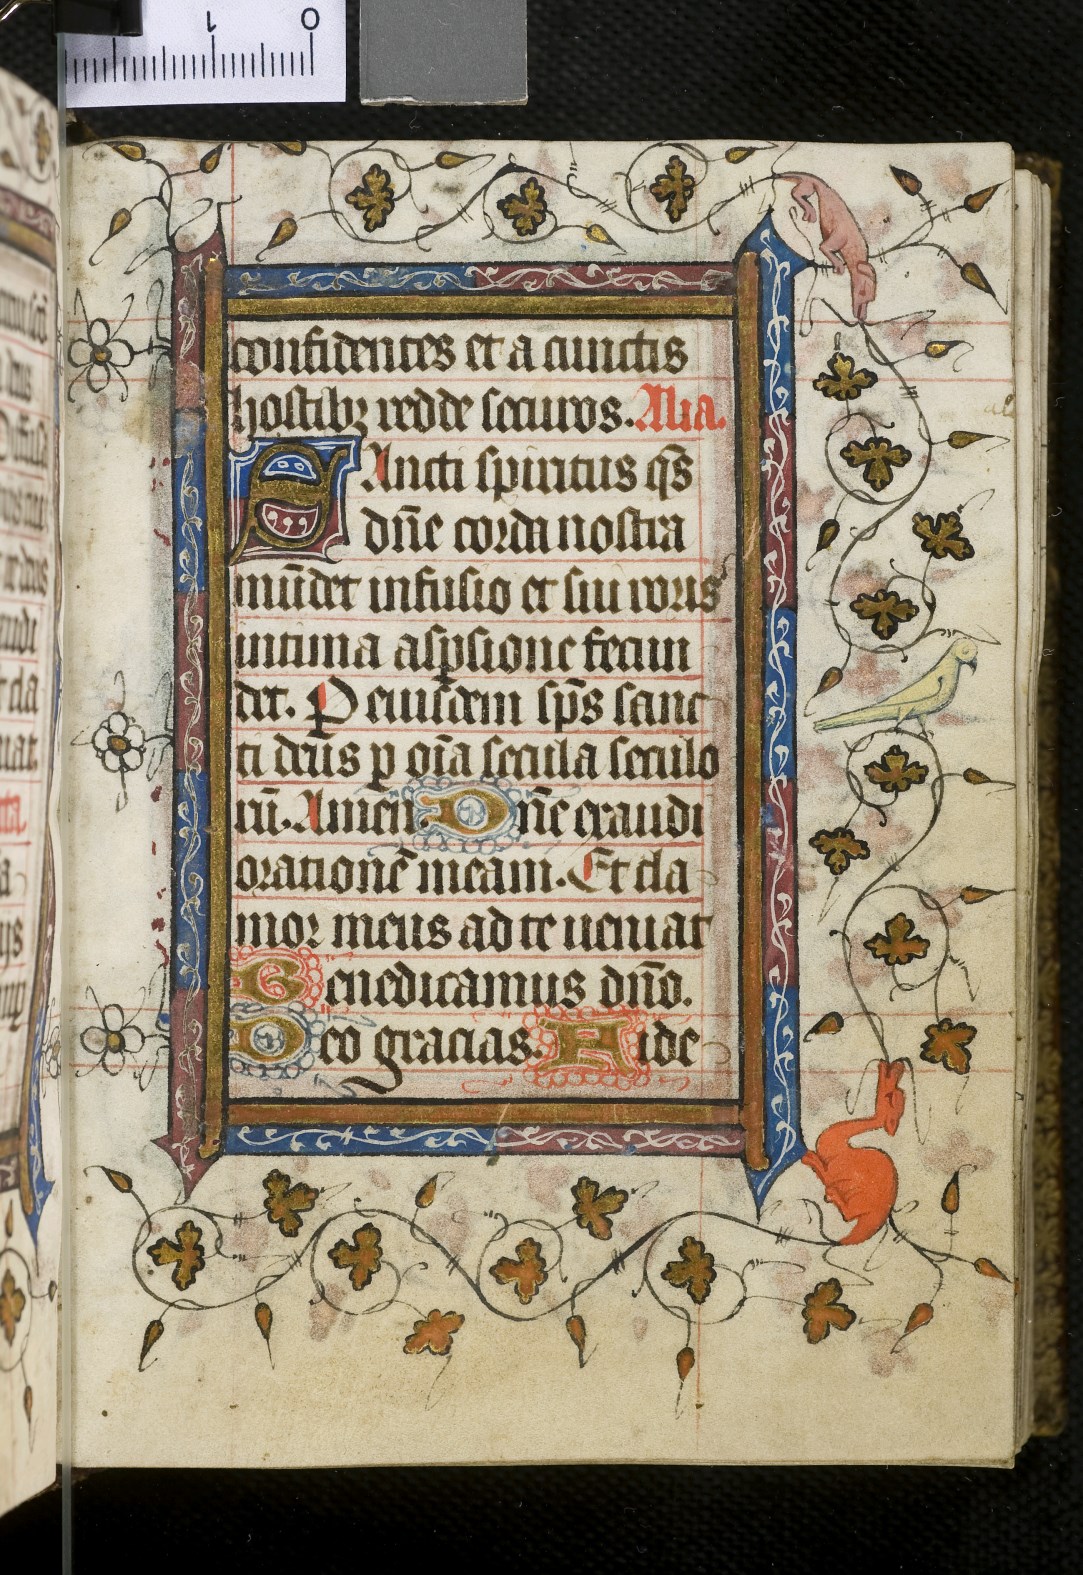 confidentes et a cunctis
hostibꝫ redde securos. Alia.
SAncti spiritus q̄s
dn̄e corda nostra
mūdet infusio et sui roris
intima asꝑsione fecun
det. P eiusdem sp̄s sanc
ti deus ꝑ oīa secula seculo
rū. Amen. Dn̄e exaudi
orationē meam. Et cla
mor meus ad te ueniat
Benedicamus dn̄o.
Deo gracias. Fide